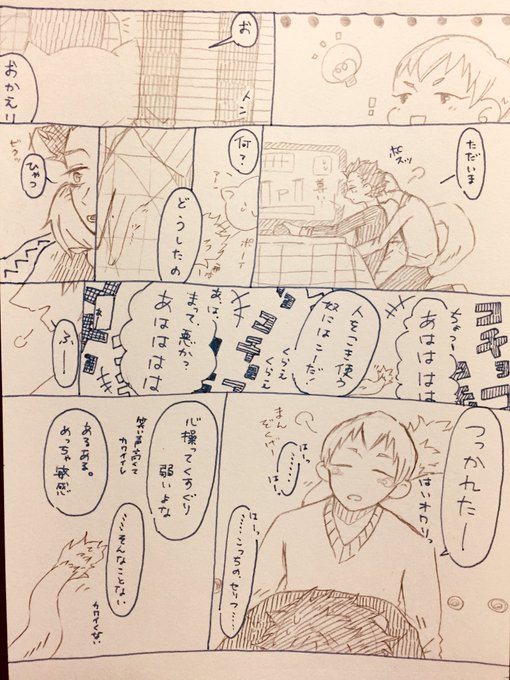 お
おかえり
ただいま
ポスッ
何?
ポーイ
どうしたの
ビクッ
ひゃっ
コチョ
ちょっ!
あはははは
人をこき使う
奴にはこーだ!
くらえ
くらえ
あは、
まて、悪かっ
あはははは
ふー
つっかれたー
はいオワリっ
まんぞくげ!
はーっ
はーっ
…………
はーっ
……こっちの、セリフ……
心操ってくすぐり
弱いよな
笑い声高くて
カワイイし
あるある。
めっちゃ敏感
……そんなことない
カワイくない